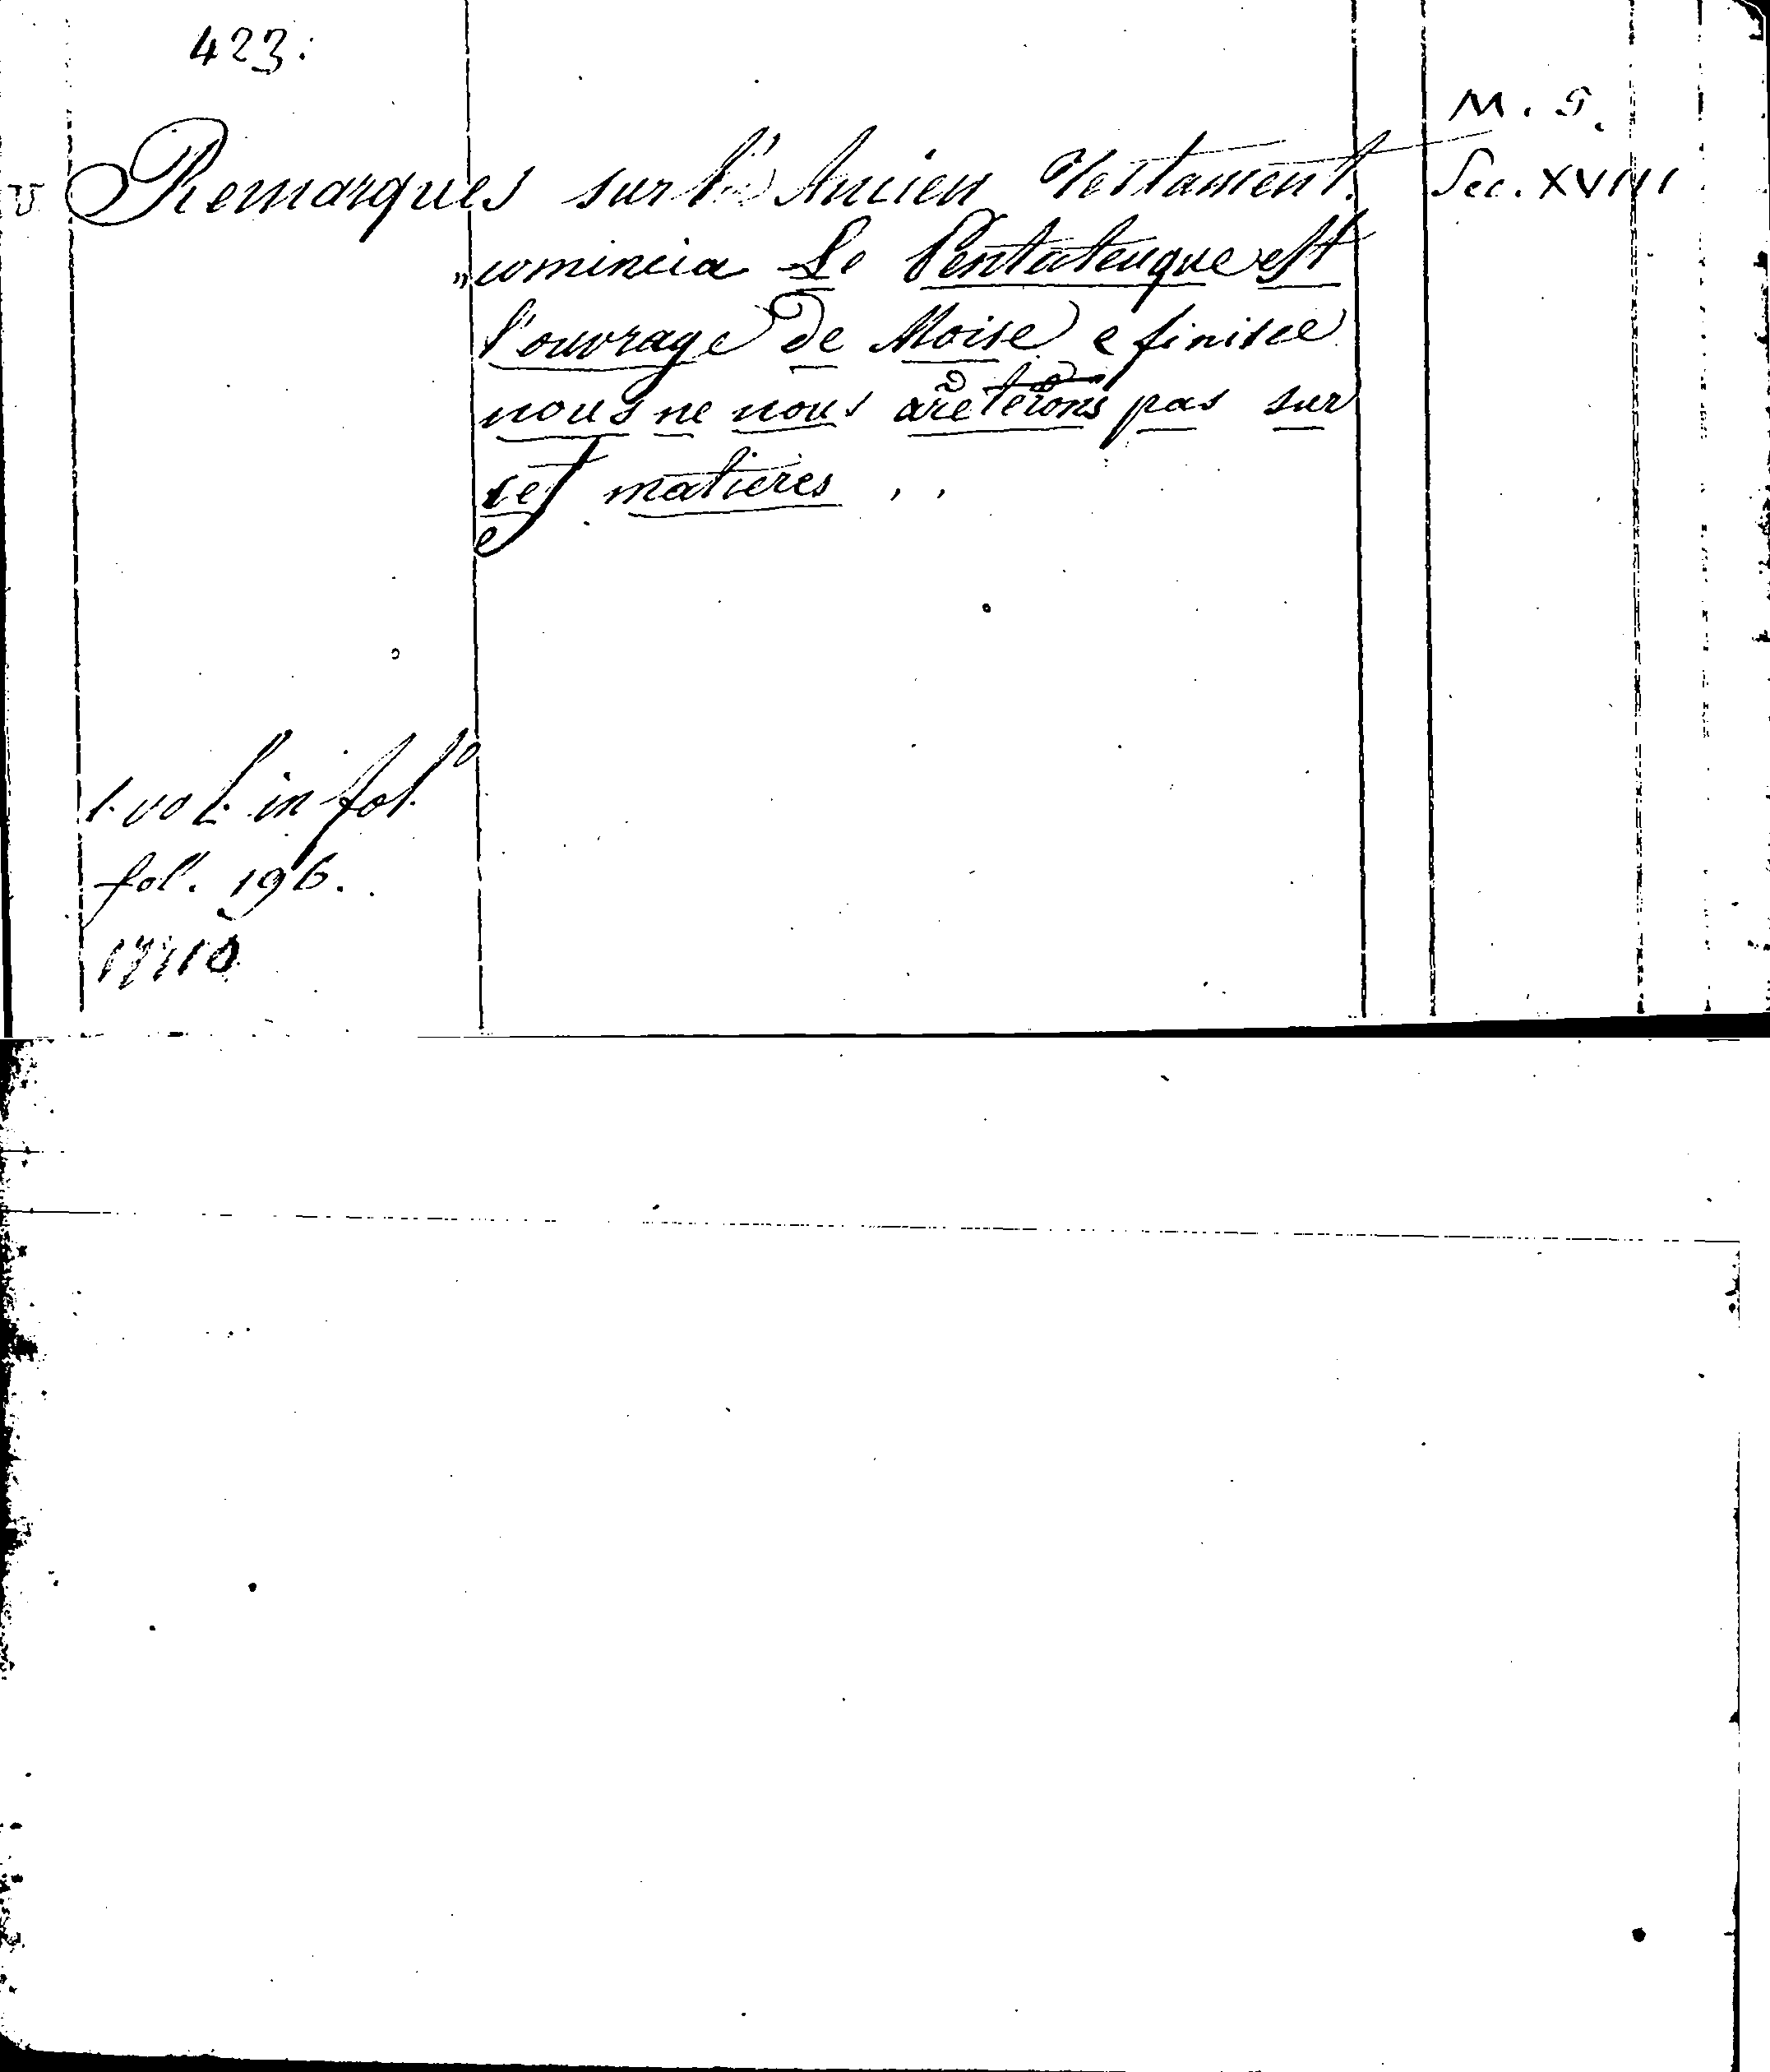 423.
M. S.
Remarques sur l'Ancien Testament.
Sec. XVIII
„comincia Le Pentateuque est
l'ouvrage de Moise e finisce
nous ne nous arêterons pas sur
ces matieres . .
1. vol. in fol.º
fol. 196.